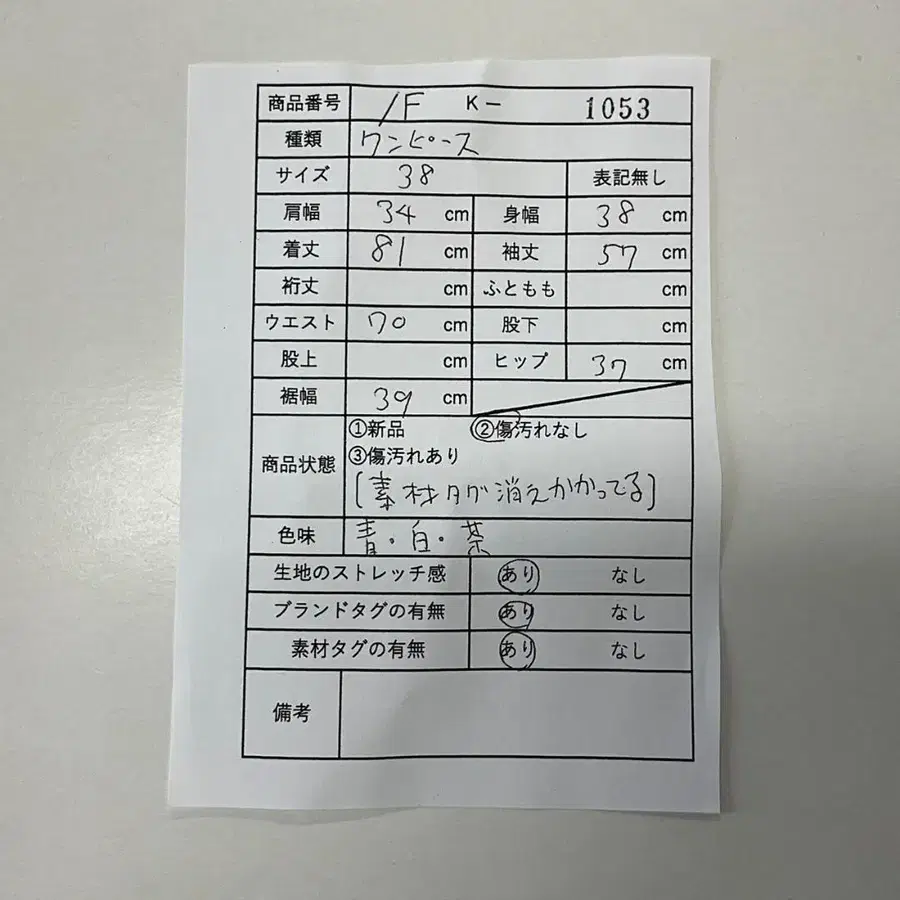 商品番号 /F K- 1053
種類 ワンピース
サイズ 38 表記無し
肩幅 34 cm 身幅 38 cm
着丈 81 cm 袖丈 57 cm
裄丈 cm ふともも cm
ウエスト 70 cm 股下 cm
股上 cm ヒップ 37 cm
裾幅 39 cm
①新品 ②傷汚れなし
商品状態 ③傷汚れあり
[素材タグ消えかかってる]
色味 青・白・茶
生地のストレッチ感 あり なし
ブランドタグの有無 あり なし
素材タグの有無 あり なし
備考